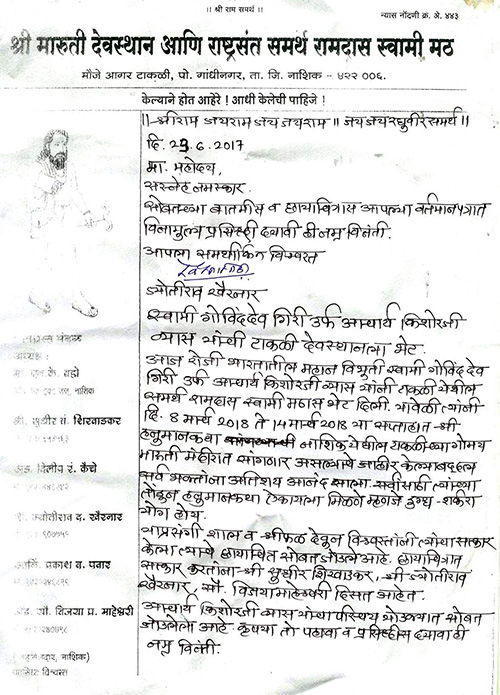 ॥ श्री राम समर्थ ॥
न्यास नोंदणी क्र. अे. ४४३
श्री मारुती देवस्थान आणि राष्ट्रसंत समर्थ रामदास स्वामी मठ
मौजे आगर टाकळी, पो. गांधीनगर, ता. जि. नाशिक - ४२२ ००६.
केल्याने होत आहेरे ! आधी केलेची पाहिजे !
॥श्रीराम जयराम जय जयराम॥ जय जय रघुवीर समर्थ॥
दि. 23.6.2017
मा. महोदय,
सस्नेह नमस्कार.
सोबतच्या बातमीस व छायाचित्रास आपल्या वर्तमानपत्रात
विनामुल्य प्रसिद्धी द्यावी ही नम्र विनंती.
आपला समर्थांकित विश्वस्त
ज्योतीराव खैरनार
स्वामी गोविंददेव गिरी उर्फ आचार्य किशोरजी
व्यास यांची टाकळी देवस्थानला भेट.
आज रोजी भारतातील महान विभूती स्वामी गोविंद देव
गिरी उर्फ आचार्य किशोरजी व्यास यांनी टाकळी येथील
समर्थ रामदास स्वामी मठास भेट दिली. यावेळी त्यांनी
दि. 8 मार्च 2018 ते 14 मार्च 2018 या सप्ताहात श्री
हनुमानकथा नाशिक येथील टाकळीच्या गोमय
मारुती मंदीरात सांगणार असल्याचे जाहीर केल्याबद्दल
सर्व भक्तांना अतिशय आनंद झाला. स्वामींच्या
तोंडून हनुमानकथा ऐकायला मिळने म्हणजे दुग्ध-शर्करा
योग होय.
याप्रसंगी शाल व श्रीफळ देवून विश्वस्तांनी त्यांचा सत्कार
केला त्याचे छायाचित्र सोबत जोडले आहे. छायाचित्रात
सत्कार करतांना श्री सुधीर शिरवाडकर, श्री ज्योतीराव
खैरनार, सौ. विजया माहेश्वरी दिसत आहेत.
आचार्य किशोरजी व्यास यांचा परिचय यांच्यात सोबत
जोडलेला आहे. कृपया तो पहावा व प्रसिद्धीस द्यावा ही
नम्र विनंती.
अध्यक्ष :
श्री. सुधीर गं. शिरवाडकर
अॅड. दिलीप रं. कैचे
श्री. ज्योतीराव द. खैरनार
प्रकाश ब. पवार
सौ. विजया प्र. माहेश्वरी